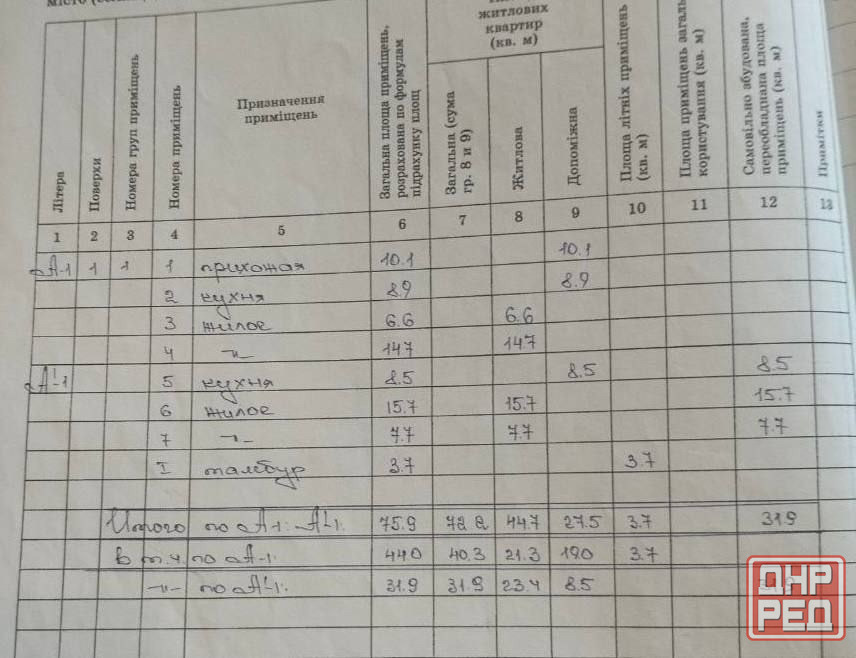 житлових
квартир
(кв. м)
Літера
Поверхи
Номера груп приміщень
Номера приміщень
Призначення
приміщень
Загальна площа приміщень,
розрахована по формулам
підрахунку площ
Загальна (сума
гр. 8 и 9)
Житлова
Допоміжна
Площа літніх приміщень
(кв. м)
Площа приміщень загаль
користування (кв. м)
Самовільно збудована,
переобладнана площа
приміщень (кв. м)
Примітки
1 2 3 4 5 6 7 8 9 10 11 12 13
А-1 1 1 1 прихожая 10.1 10.1
2 кухня 8.9 8.9
3 жилое 6.6 6.6
4 -"- 14.7 14.7
А'-1 5 кухня 8.5 8.5 8.5
6 жилое 15.7 15.7 15.7
7 -"- 7.7 7.7 7.7
I тамбур 3.7 3.7
Итого по А-1: А'-1: 75.9 72.2 44.7 27.5 3.7 31.9
в т.ч. по А-1: 44.0 40.3 21.3 19.0 3.7
-"- по А'-1: 31.9 31.9 23.4 8.5 31.9
ДНР
РЕД